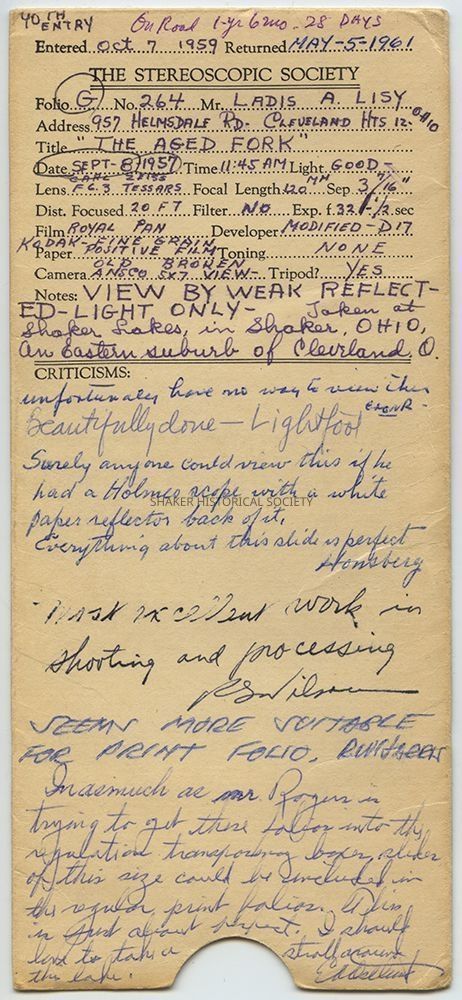 40TH ENTRY On Road 1-yr 6 mo. 28 DAYS
Entered Oct 7 1959 Returned MAY-5-1961
THE STEREOSCOPIC SOCIETY
Folio G No. 264 Mr. LADIS A LISY
Address 957 HELMSDALE RD. CLEVELAND HTS 12. OHIO
Title "THE AGED FORK"
Date SEPT-8/1957 Time 11:45 AM Light GOOD-
CARL ZEISS
Lens F6.3 TESSARS Focal Length 120 MM Sep 3 7/16"
Dist. Focused 20 FT Filter NO Exp. f.32 - 1/2 sec
Film ROYAL PAN Developer MODIFIED-D17
KODAK-FINE GRAIN
Paper POSITIVE FILM Toning NONE
OLD BROWEN
Camera ANSCO 5X7 VIEW- Tripod? YES
Notes: VIEW BY WEAK REFLECT-
ED-LIGHT ONLY- Taken at
Shaker Lakes, in Shaker, OHIO,
An Eastern suburb of Cleveland, O.
CRITICISMS:
unfortunately have no way to view this
Beautifully done - Lightfoot
Surely anyone could view this if he
had a Holmes scope with a white
SHAKER HISTORICAL SOCIETY
paper reflector back of it.
Everything about this slide is perfect
Honsberg
Most excellent work in
shooting and processing
Wilson
SEEMS MORE SUITABLE
FOR PRINT FOLIO.
Inasmuch as mr Rogers is
trying to get these folios into the
regulation transparency boxes, slides
of this size could be included in
the regular, print folios. This
is just about perfect. I should
love to take a stroll around
the lake.